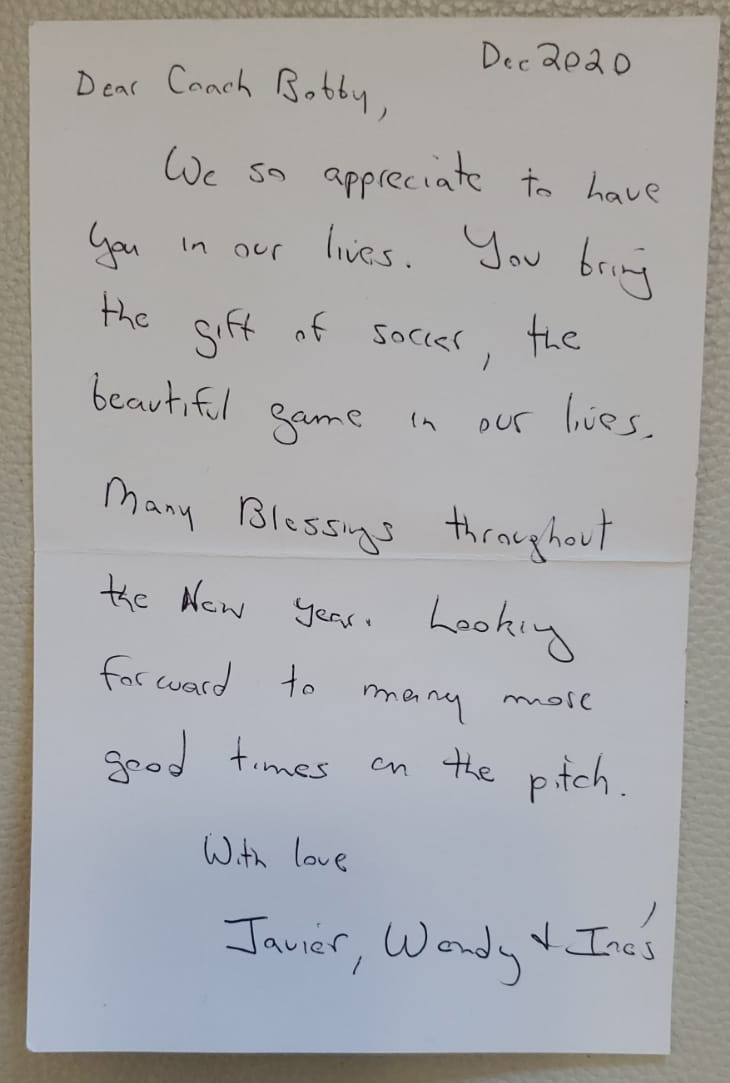 Dec 2020
Dear Coach Bobby,
We so appreciate to have
you in our lives. You bring
the gift of soccer, the
beautiful game in our lives.
Many Blessings throughout
the New Year. Looking
forward to many more
good times on the pitch.
With love
Javier, Wendy & Inés